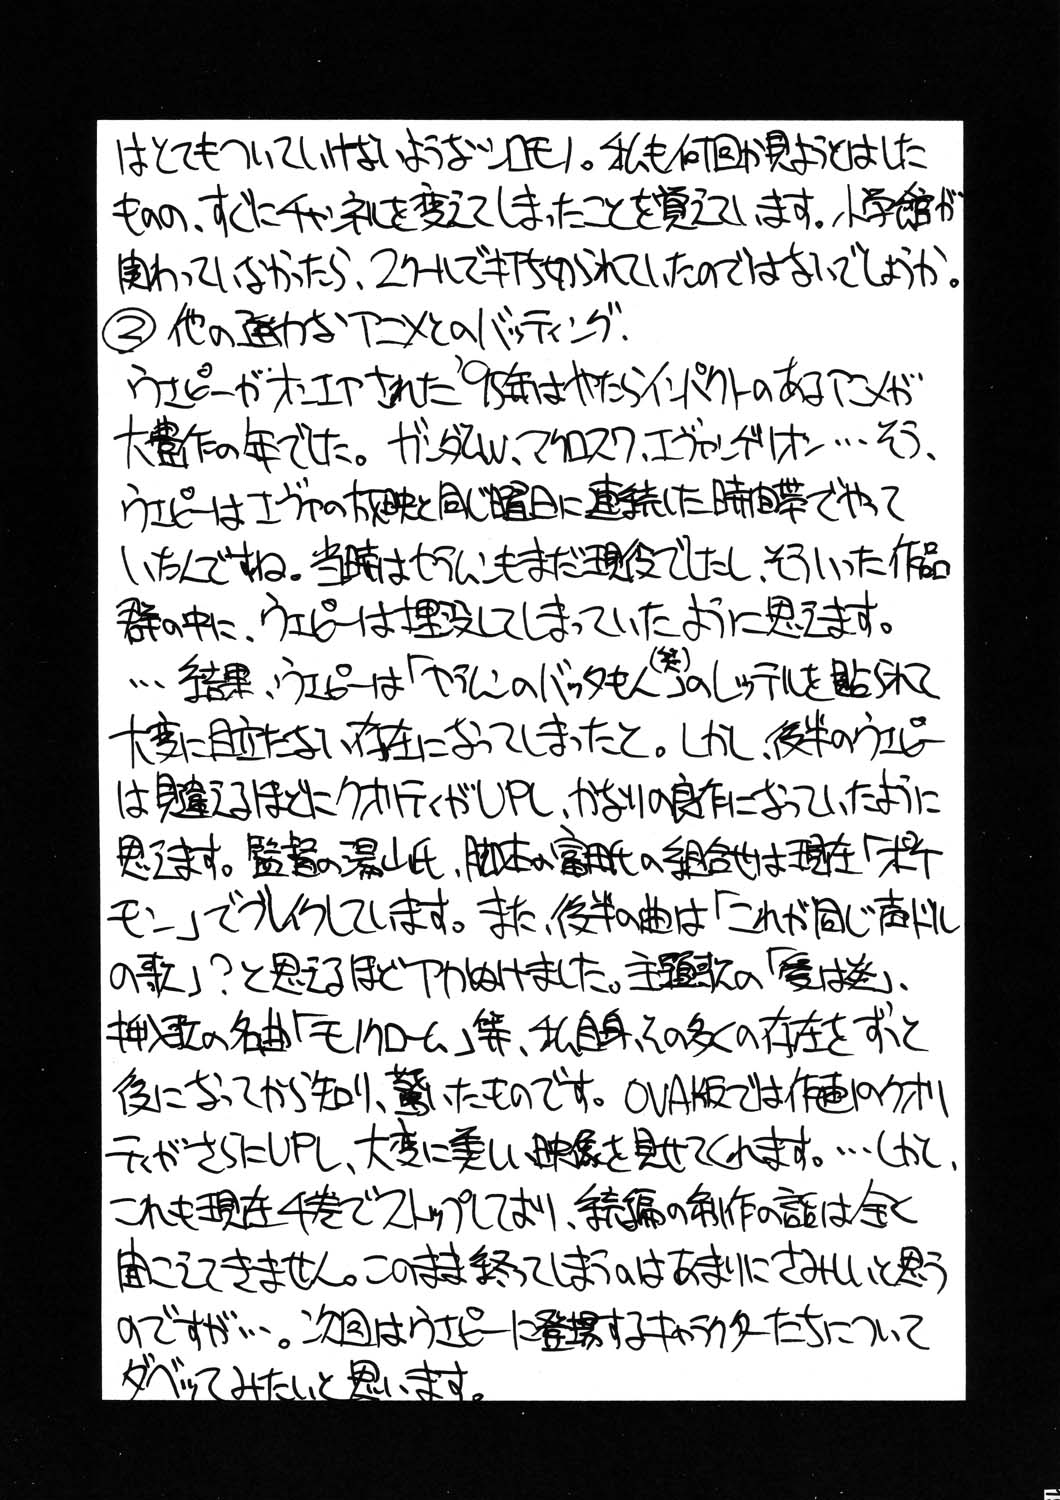 はとてもついていけないようなシロモノ。私も何回か見ようとはした
ものの、すぐにチャンネルを変えてしまったことを覚えています。小学館が
関わっていなかったら、2クールで打ち切られていたのではないでしょうか。
② 他の強力なアニメとのバッティング、
ウエピーがオンエアされた'95年はやたらインパクトのあるアニメが
大豊作の年でした。ガンダムW、マクロス7、エヴァンゲリオン…そう、
ウエピーはエヴァの放映と同じ曜日に連続した時間帯でやって
いたんですね。当時はセラムンもまだ現役でしたし、そういった作品
群の中に、ウエピーは埋没してしまっていたように思えます。
… 結果、ウエピーは「セラムンのバッタもん(笑)」のレッテルを貼られて
大変に目立たない存在になってしまったと。しかし、後半のウエピー
は見違えるほどにクオリティがUPし、かなりの良作になっていたように
思えます。監督の湯山氏、脚本の富田氏の組合せは現在「ポケ
モン」でブレイクしています。また、後半の曲は「これが同じ声ドル
の歌」?と思えるほどアカぬけました。主題歌の「愛は迷」、
挿入歌の名曲「モノクローム」等、私自身、その多くの存在をずっと
後になってから知り、驚いたものです。OVA版では作画のクオリ
ティがさらにUPし、大変に美しい映像を見せてくれます。…しかし、
これも現在4巻でストップしており、続編の制作の話は全く
聞こえてきません。このまま終ってしまうのはあまりにさみしいと思う
のですが…。次回はウエピーに登場するキャラクターたちについて
ダベッてみたいと思います。